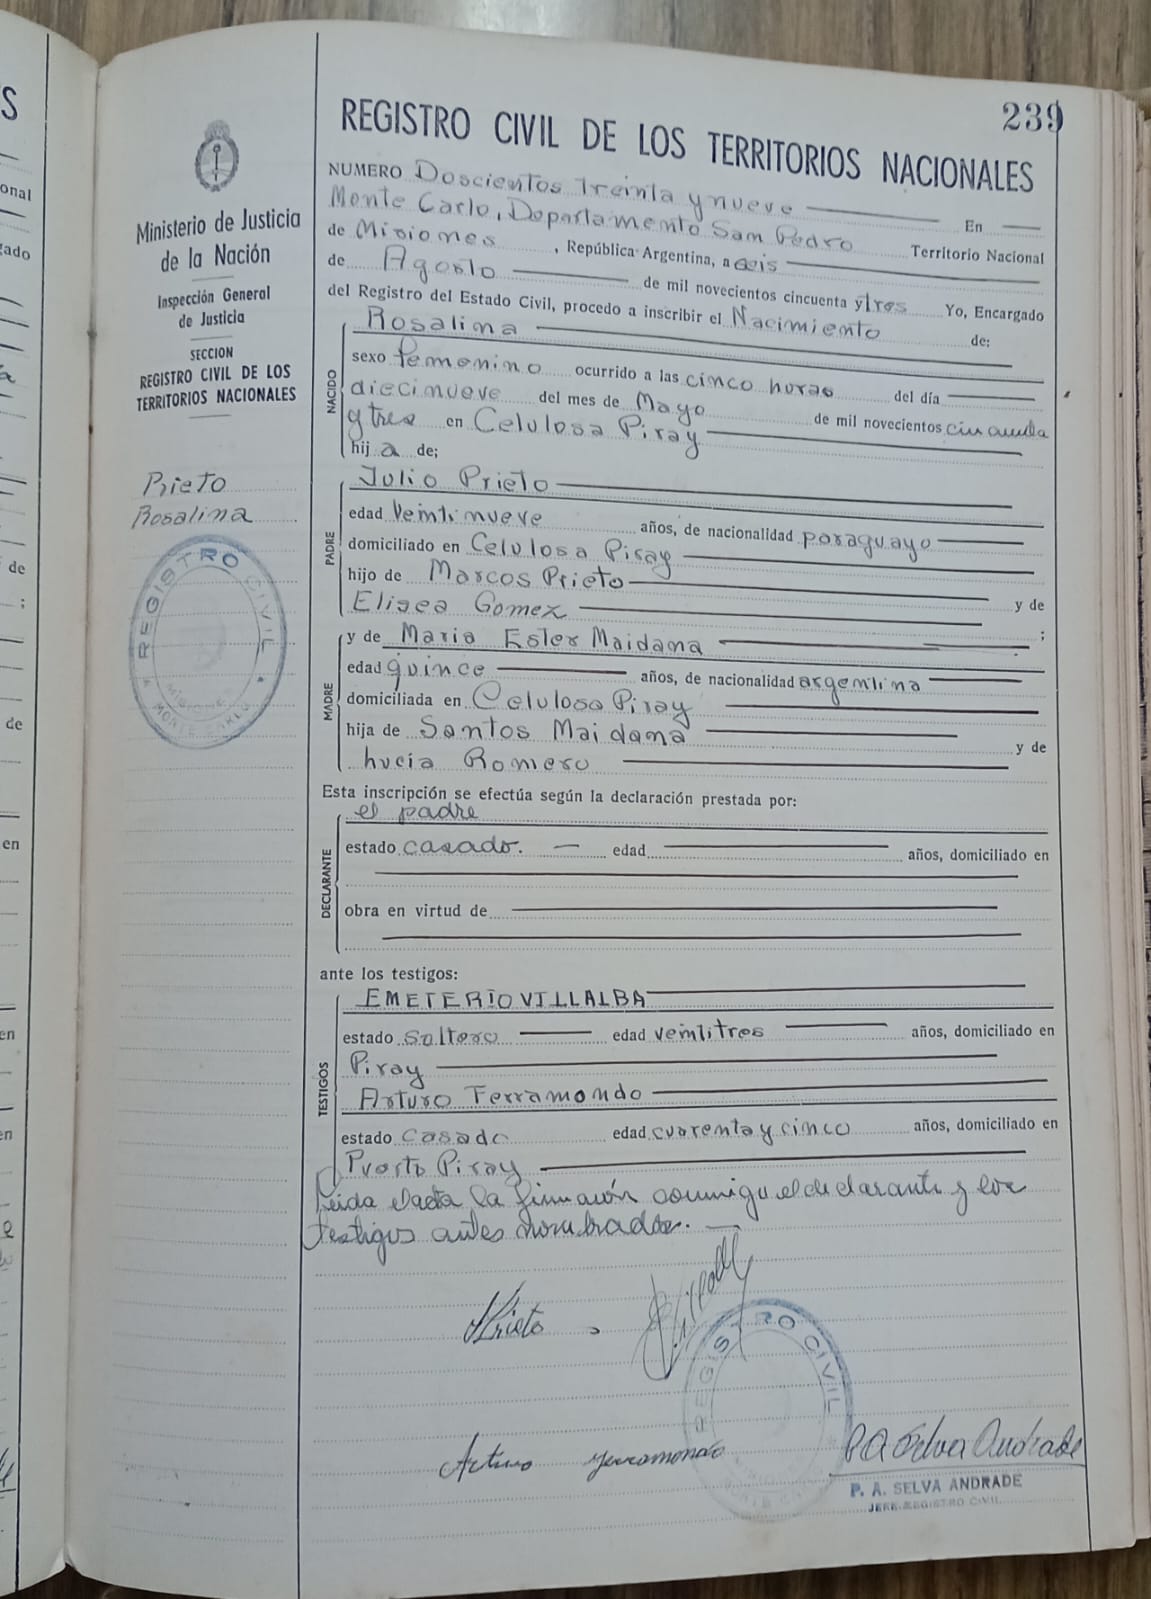 239
REGISTRO CIVIL DE LOS TERRITORIOS NACIONALES
Ministerio de Justicia
de la Nación
Inspección General
de Justicia
SECCION
REGISTRO CIVIL DE LOS
TERRITORIOS NACIONALES
Prieto
Rosalina
REGISTRO CIVIL
MISIONES
MONTE CARLO
NUMERO Doscientos Treinta y nueve En
Monte Carlo, Departamento San Pedro Territorio Nacional
de Misiones, República Argentina, a seis
de Agosto de mil novecientos cincuenta y tres Yo, Encargado
del Registro del Estado Civil, procedo a inscribir el Nacimiento de:
NACIDO
Rosalina
sexo femenino ocurrido a las cinco horas del día
diecinueve del mes de Mayo de mil novecientos cincuenta
y tres en Celulosa Piray
hija de;
PADRE
Julio Prieto
edad Veintinueve años, de nacionalidad paraguayo
domiciliado en Celulosa Piray
hijo de Marcos Prieto y de
Elisea Gomez ;
MADRE
y de Maria Ester Maidana
edad quince años, de nacionalidad argentina
domiciliada en Celulosa Piray
hija de Santos Maidana y de
Lucía Romero
Esta inscripción se efectúa según la declaración prestada por:
DECLARANTE
el padre
estado casado. edad años, domiciliado en
obra en virtud de
ante los testigos:
TESTIGOS
EMETERIO VILLALBA
estado soltero edad veintitres años, domiciliado en
Piray
Arturo Terramondo
estado casado edad cuarenta y cinco años, domiciliado en
Puerto Piray
Leida el acta la firmaron conmigo el declarante y los
testigos antes nombrados.
Prieto
REGISTRO CIVIL
Arturo
P A Selva Andrade
P. A. SELVA ANDRADE
JEFE REGISTRO CIVIL